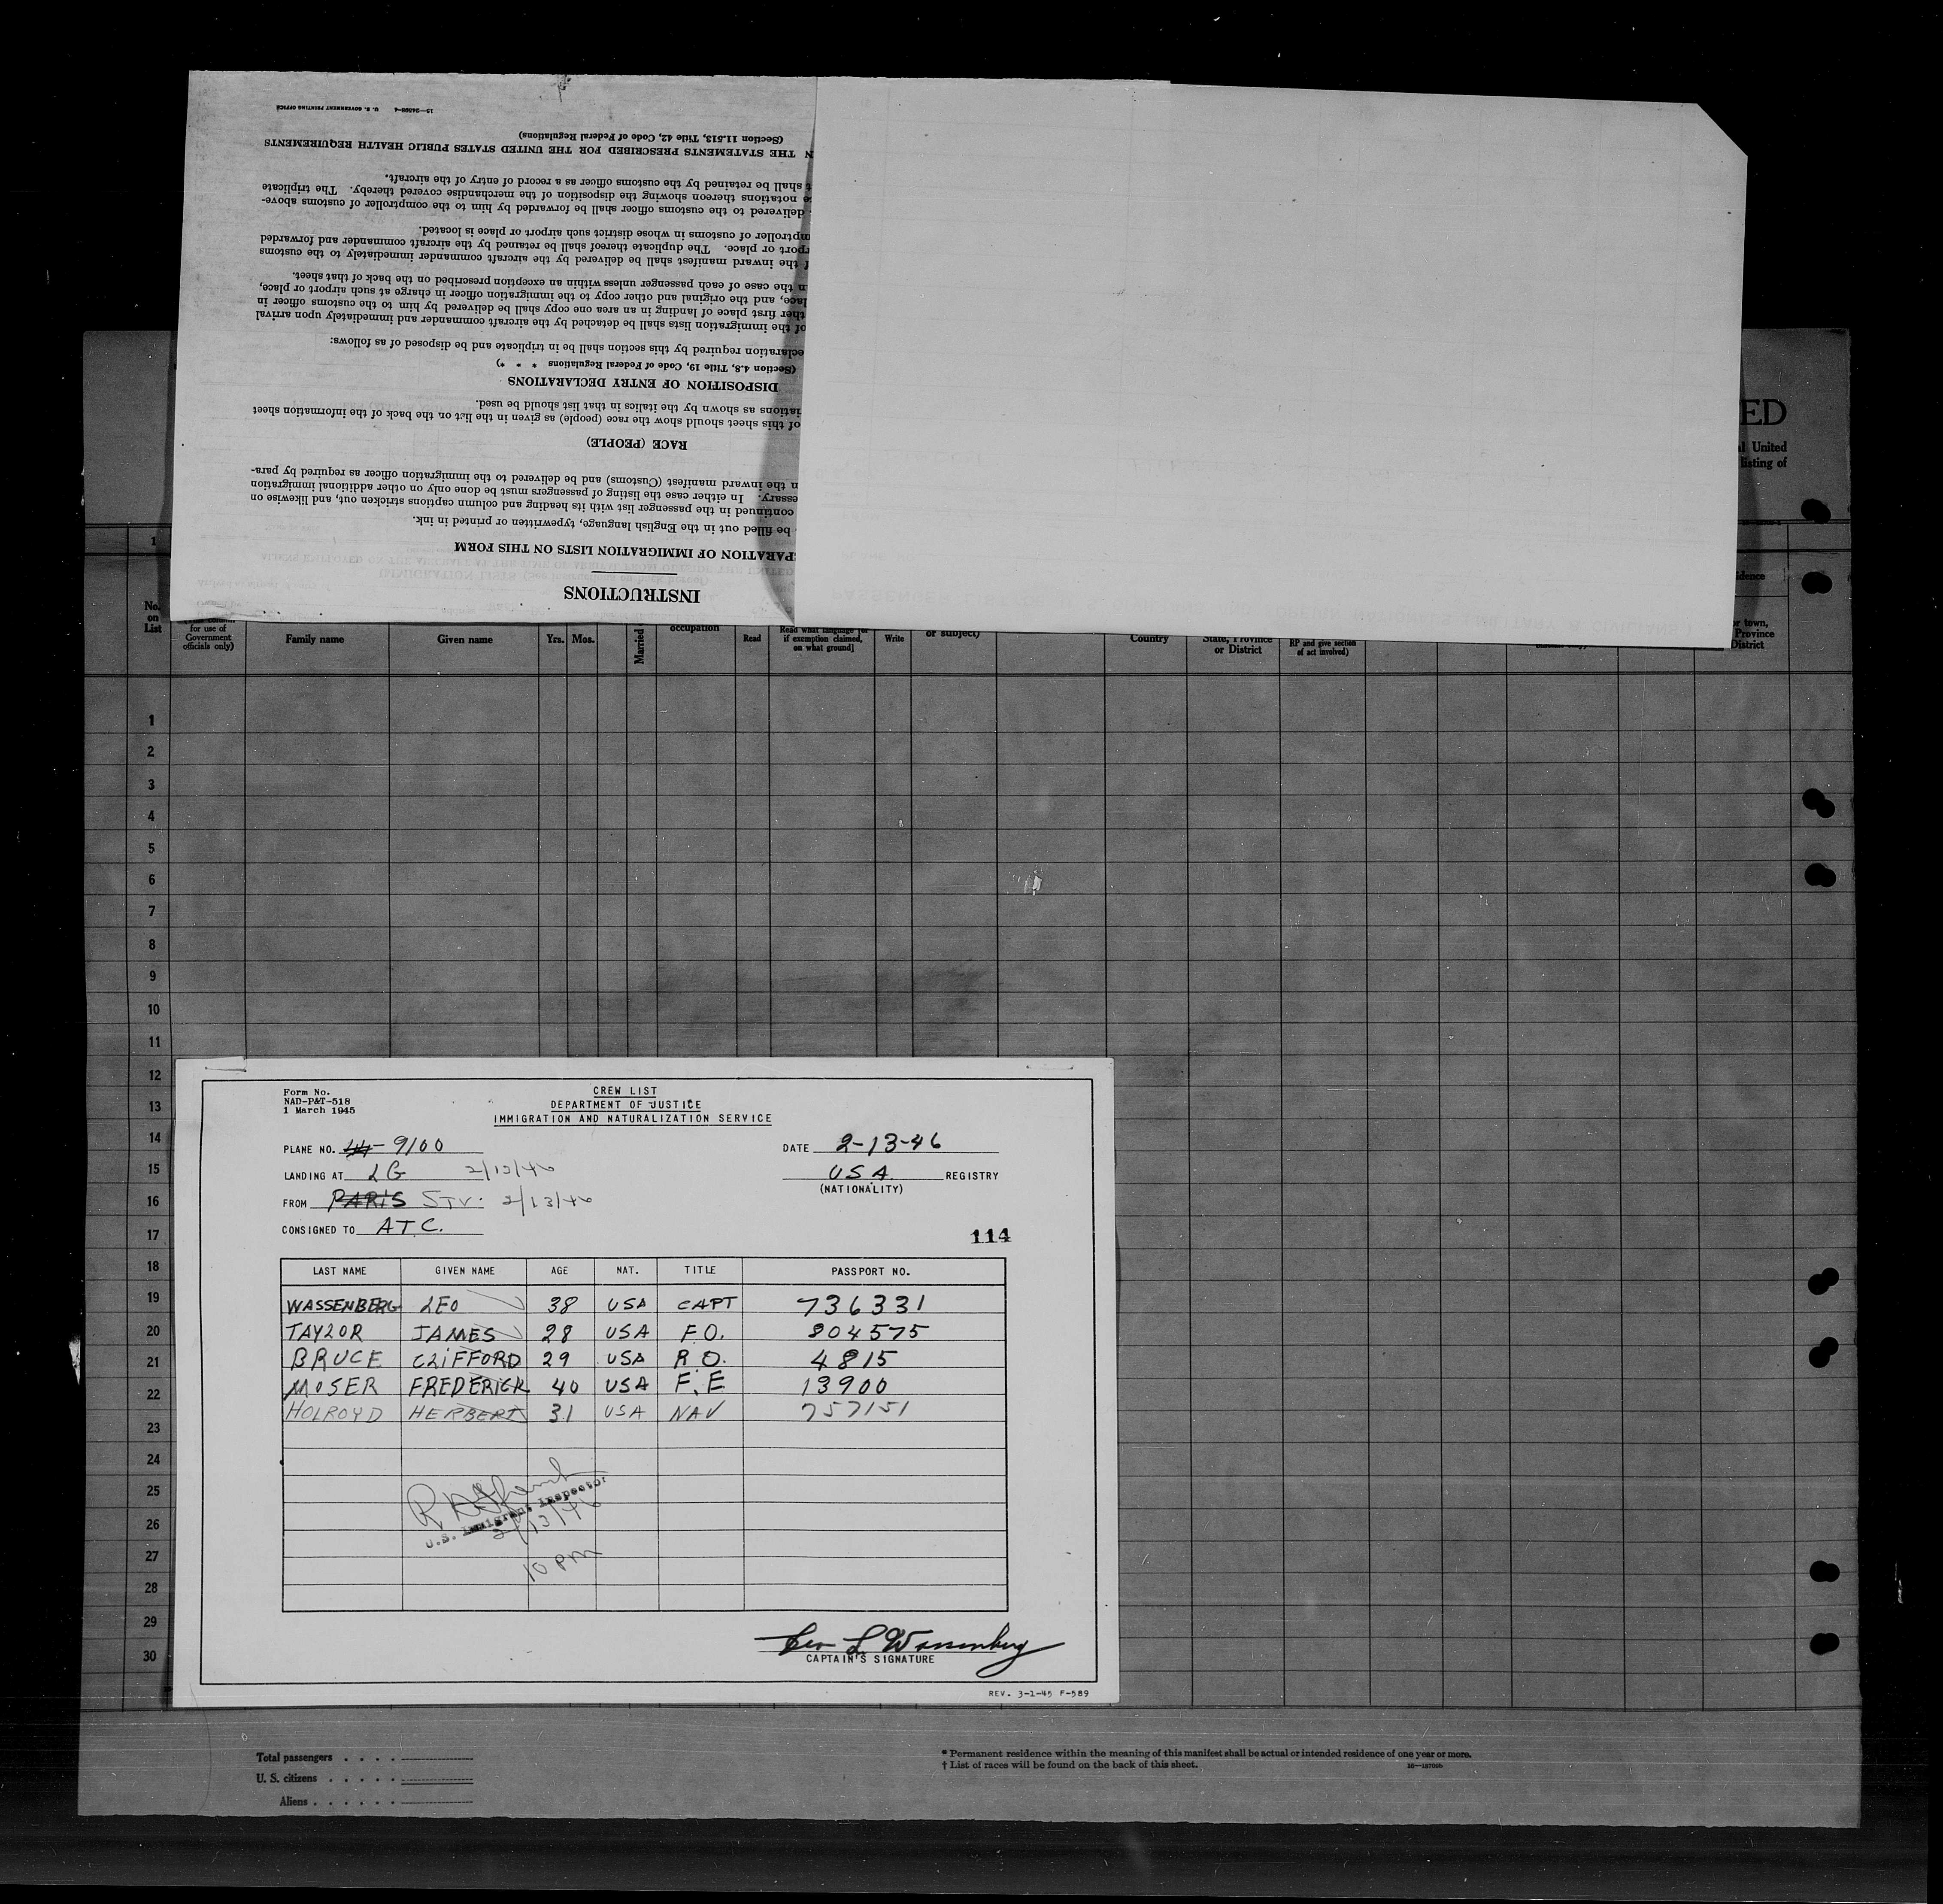 15—24598-4 U. S. GOVERNMENT PRINTING OFFICE
(Section 11.513, Title 42, Code of Federal Regulations)
THE STATEMENTS PRESCRIBED FOR THE UNITED STATES PUBLIC HEALTH REQUIREMENTS
shall be retained by the customs officer as a record of entry of the aircraft.
notations thereon showing the disposition of the merchandise covered thereby. The triplicate
delivered to the customs officer shall be forwarded by him to the comptroller of customs above-
mptroller of customs in whose district such airport or place is located.
rport or place. The duplicate thereof shall be retained by the aircraft commander and forwarded
f the inward manifest shall be delivered by the aircraft commander immediately to the customs
n the case of each passenger unless within an exception prescribed on the back of that sheet.
lace, and the original and other copy to the immigration officer in charge at such airport or place,
ther first place of landing in an area one copy shall be delivered by him to the customs officer in
of the immigration lists shall be detached by the aircraft commander and immediately upon arrival
eclaration required by this section shall be in triplicate and be disposed of as follows:
(Section 4.8, Title 19, Code of Federal Regulations * * *)
DISPOSITION OF ENTRY DECLARATIONS
iations as shown by the italics in that list should be used.
of this sheet should show the race (people) as given in the list on the back of the information sheet
RACE (PEOPLE)
n the inward manifest (Customs) and be delivered to the immigration officer as required by para-
essary. In either case the listing of passengers must be done only on other additional immigration
continued in the passenger list with its heading and column captions stricken out, and likewise on
be filled out in the English language, typewritten or printed in ink.
PARATION OF IMMIGRATION LISTS ON THIS FORM
INSTRUCTIONS
ED
United
listing of
1
No. on List
for use of Government officials only)
Family name
Given name
Yrs. Mos.
Married
occupation
Read
Read what language [or if exemption claimed, on what ground]
Write
or subject)
Country
State, Province or District
RP and give section of act involved)
idence
r town, Province District
1
2
3
4
5
6
7
8
9
10
11
12
13
14
15
16
17
18
19
20
21
22
23
24
25
26
27
28
29
30
Form No.
NAD-P&T-518
1 March 1945
CREW LIST
DEPARTMENT OF JUSTICE
IMMIGRATION AND NATURALIZATION SERVICE
PLANE NO. 9100
DATE 2-13-46
LANDING AT LG 2/13/46
USA REGISTRY
(NATIONALITY)
FROM PARIS STV. 2/13/46
CONSIGNED TO A.T.C.
114
LAST NAME GIVEN NAME AGE NAT. TITLE PASSPORT NO.
WASSENBERG LEO 38 USA CAPT 736331
TAYLOR JAMES 28 USA F.O. 804575
BRUCE CLIFFORD 29 USA R.O. 4815
MOSER FREDERICK 40 USA F.E 13900
HOLROYD HERBERT 31 USA NAV 757151
U.S. Immigrant Inspector
2/13/46
10 pm
Leo L Wassenberg
CAPTAIN'S SIGNATURE
REV. 3-1-45 F-589
Total passengers . . . .
U. S. citizens . . . . .
Aliens . . . . . .
* Permanent residence within the meaning of this manifest shall be actual or intended residence of one year or more.
† List of races will be found on the back of this sheet.